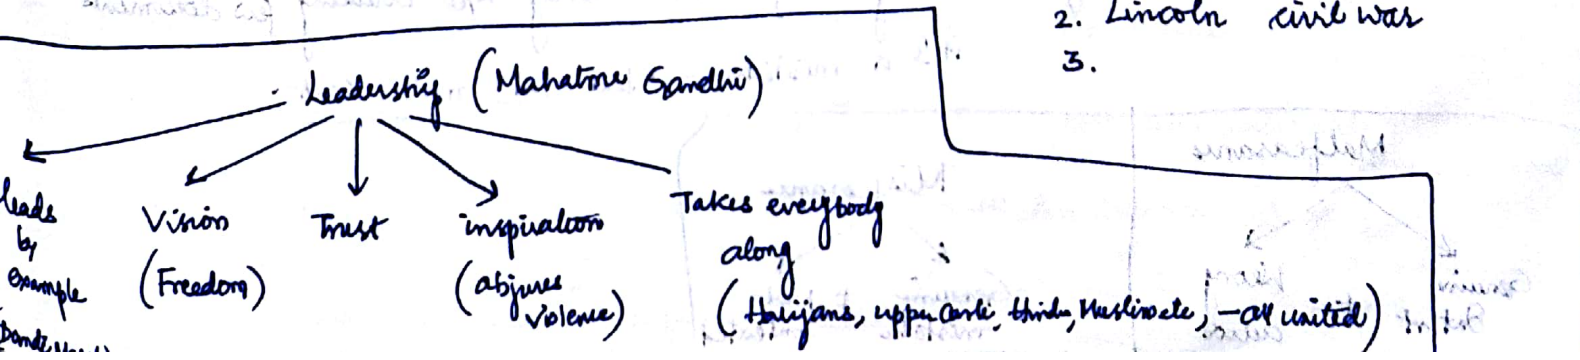 2. Lincoln civil war
3.
Leadership (Mahatma Gandhi)
leads by example
Vision (Freedom)
Trust
inspiration (abjures violence)
Takes everybody along
(Harijans, upper caste, Hindu, Muslim etc, - all united)